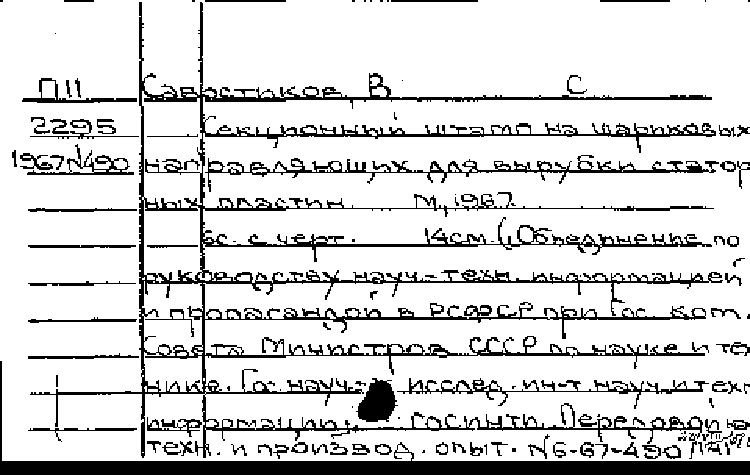 П11 Савостиков В С
2295 Секционный штамп на шариковых
1967 №490 направляющих для вырубки статор
ных пластин. М., 1967.
6с. с черт. 14см. (Объединение по
руководству науч.-техн. информацией
и пропагандой в РСФСР при Гос. ком.
Совета Министров СССР по науке и тех
нике. Гос. науч.- исслед. ин-т. науч. и техн
информации. ГОСИНТИ. Передовой
техн. и производ. опыт. №6-67-490